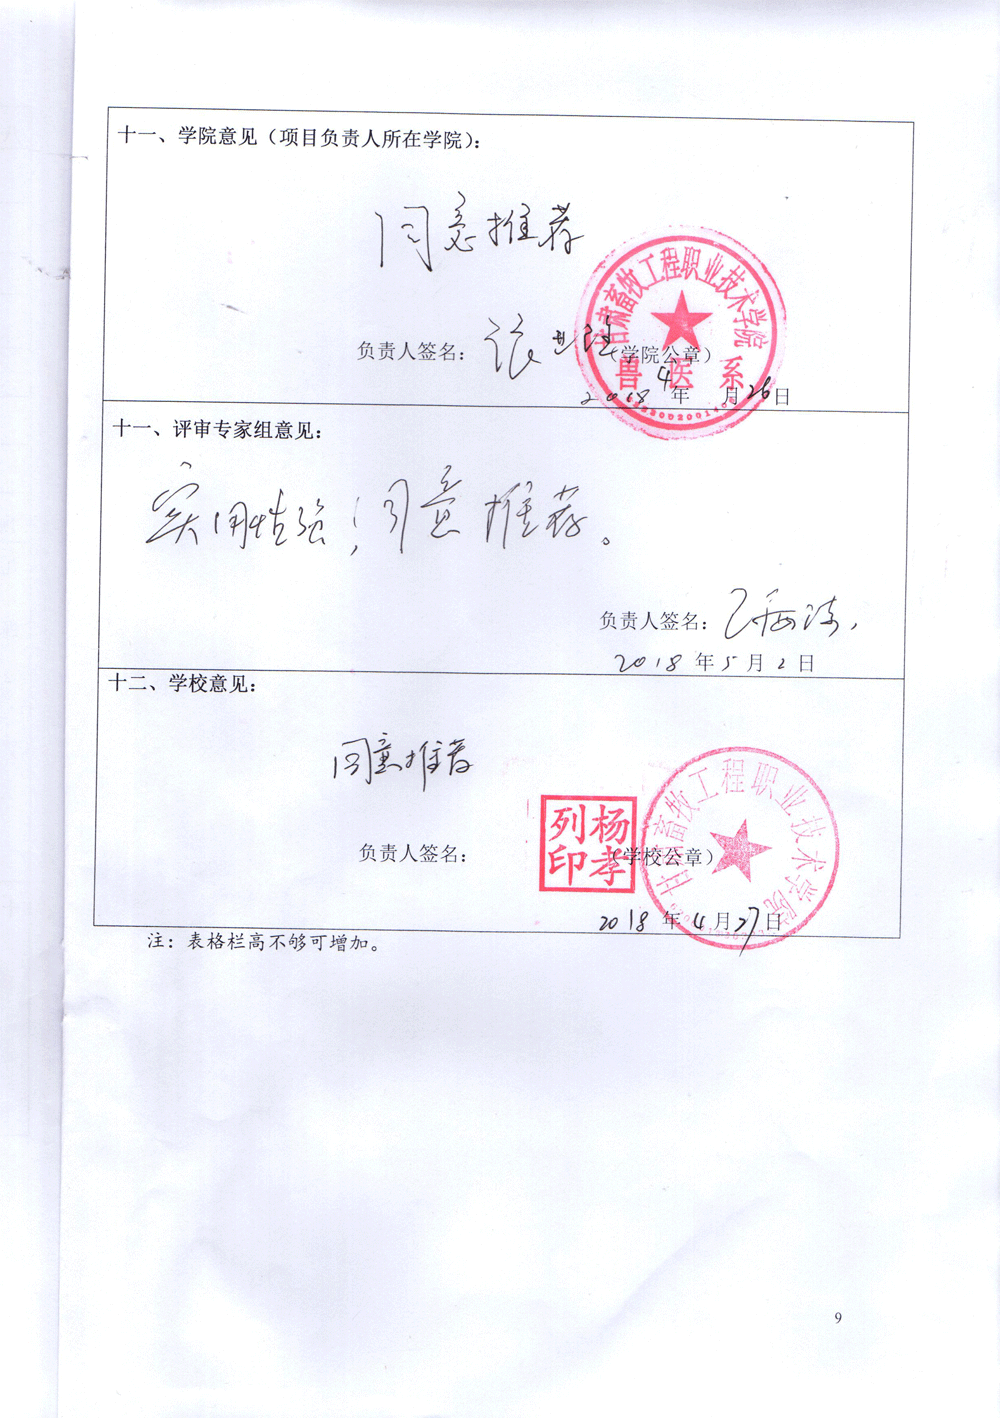 十一、学院意见（项目负责人所在学院）：
同意推荐
甘肃畜牧工程职业技术学院
兽医系
负责人签名：张
（学院公章）
2018年4月26日
十一、评审专家组意见：
实用性强，同意推荐。
负责人签名：
2018年5月2日
十二、学校意见：
同意推荐
甘肃畜牧工程职业技术学院
杨孝列印
负责人签名：
（学校公章）
2018年4月27日
注：表格栏高不够可增加。
9